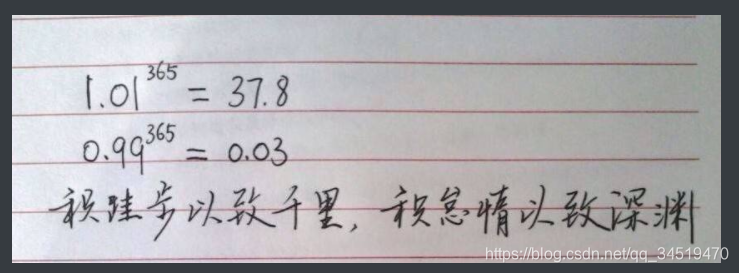 1.01^365 = 37.8
0.99^365 = 0.03
积跬步以致千里，积怠惰以致深渊
https://blog.csdn.net/qq_34519470